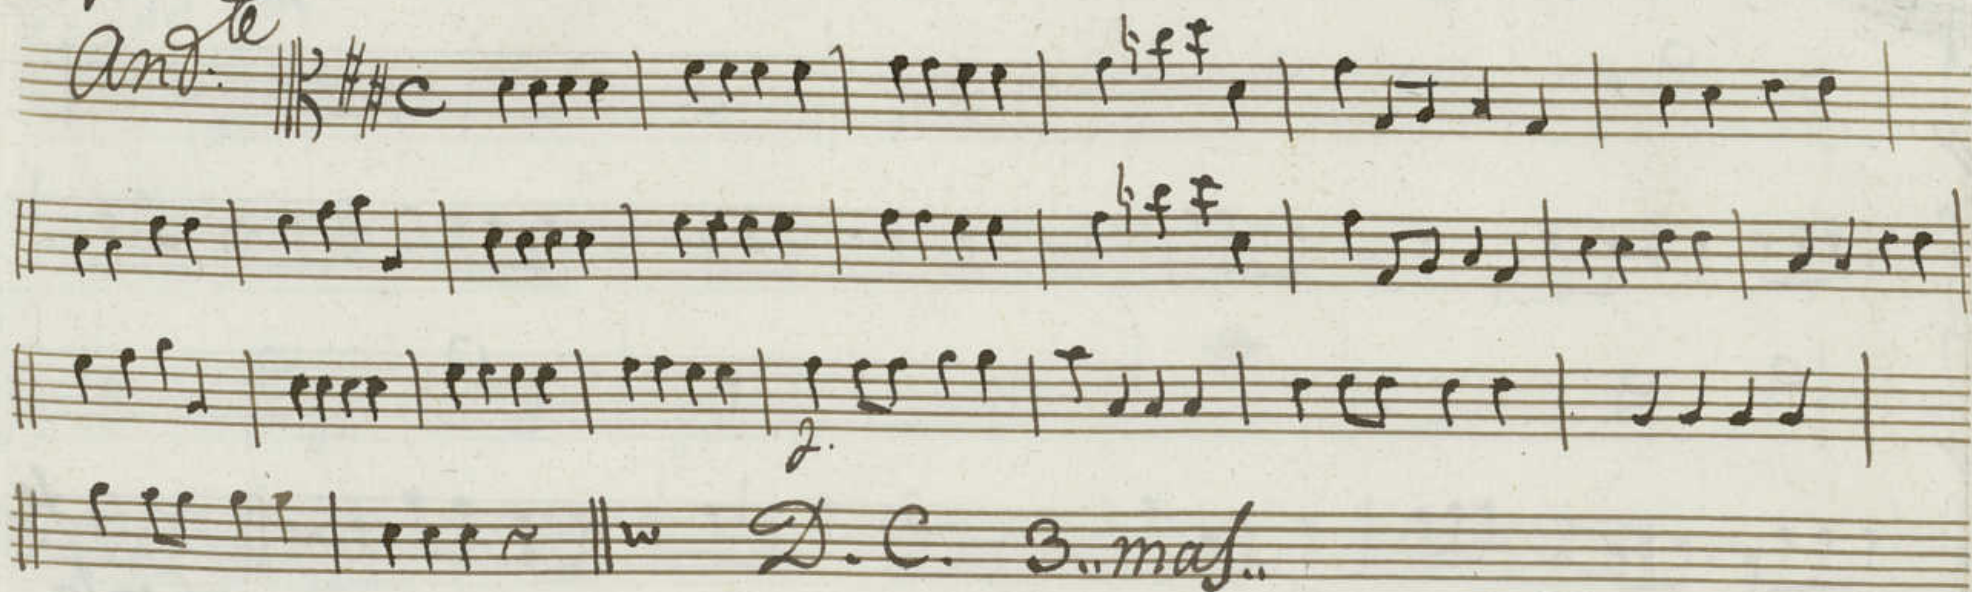 And.te
2.
D. C. 3.. mas..